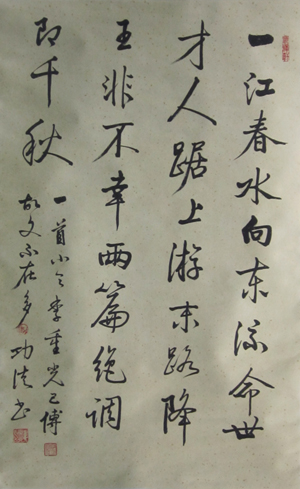 一江春水向东流命世
才人踞上游末路降
王非不幸两篇绝调
即千秋
一首小令李重光已傳
故文不在多